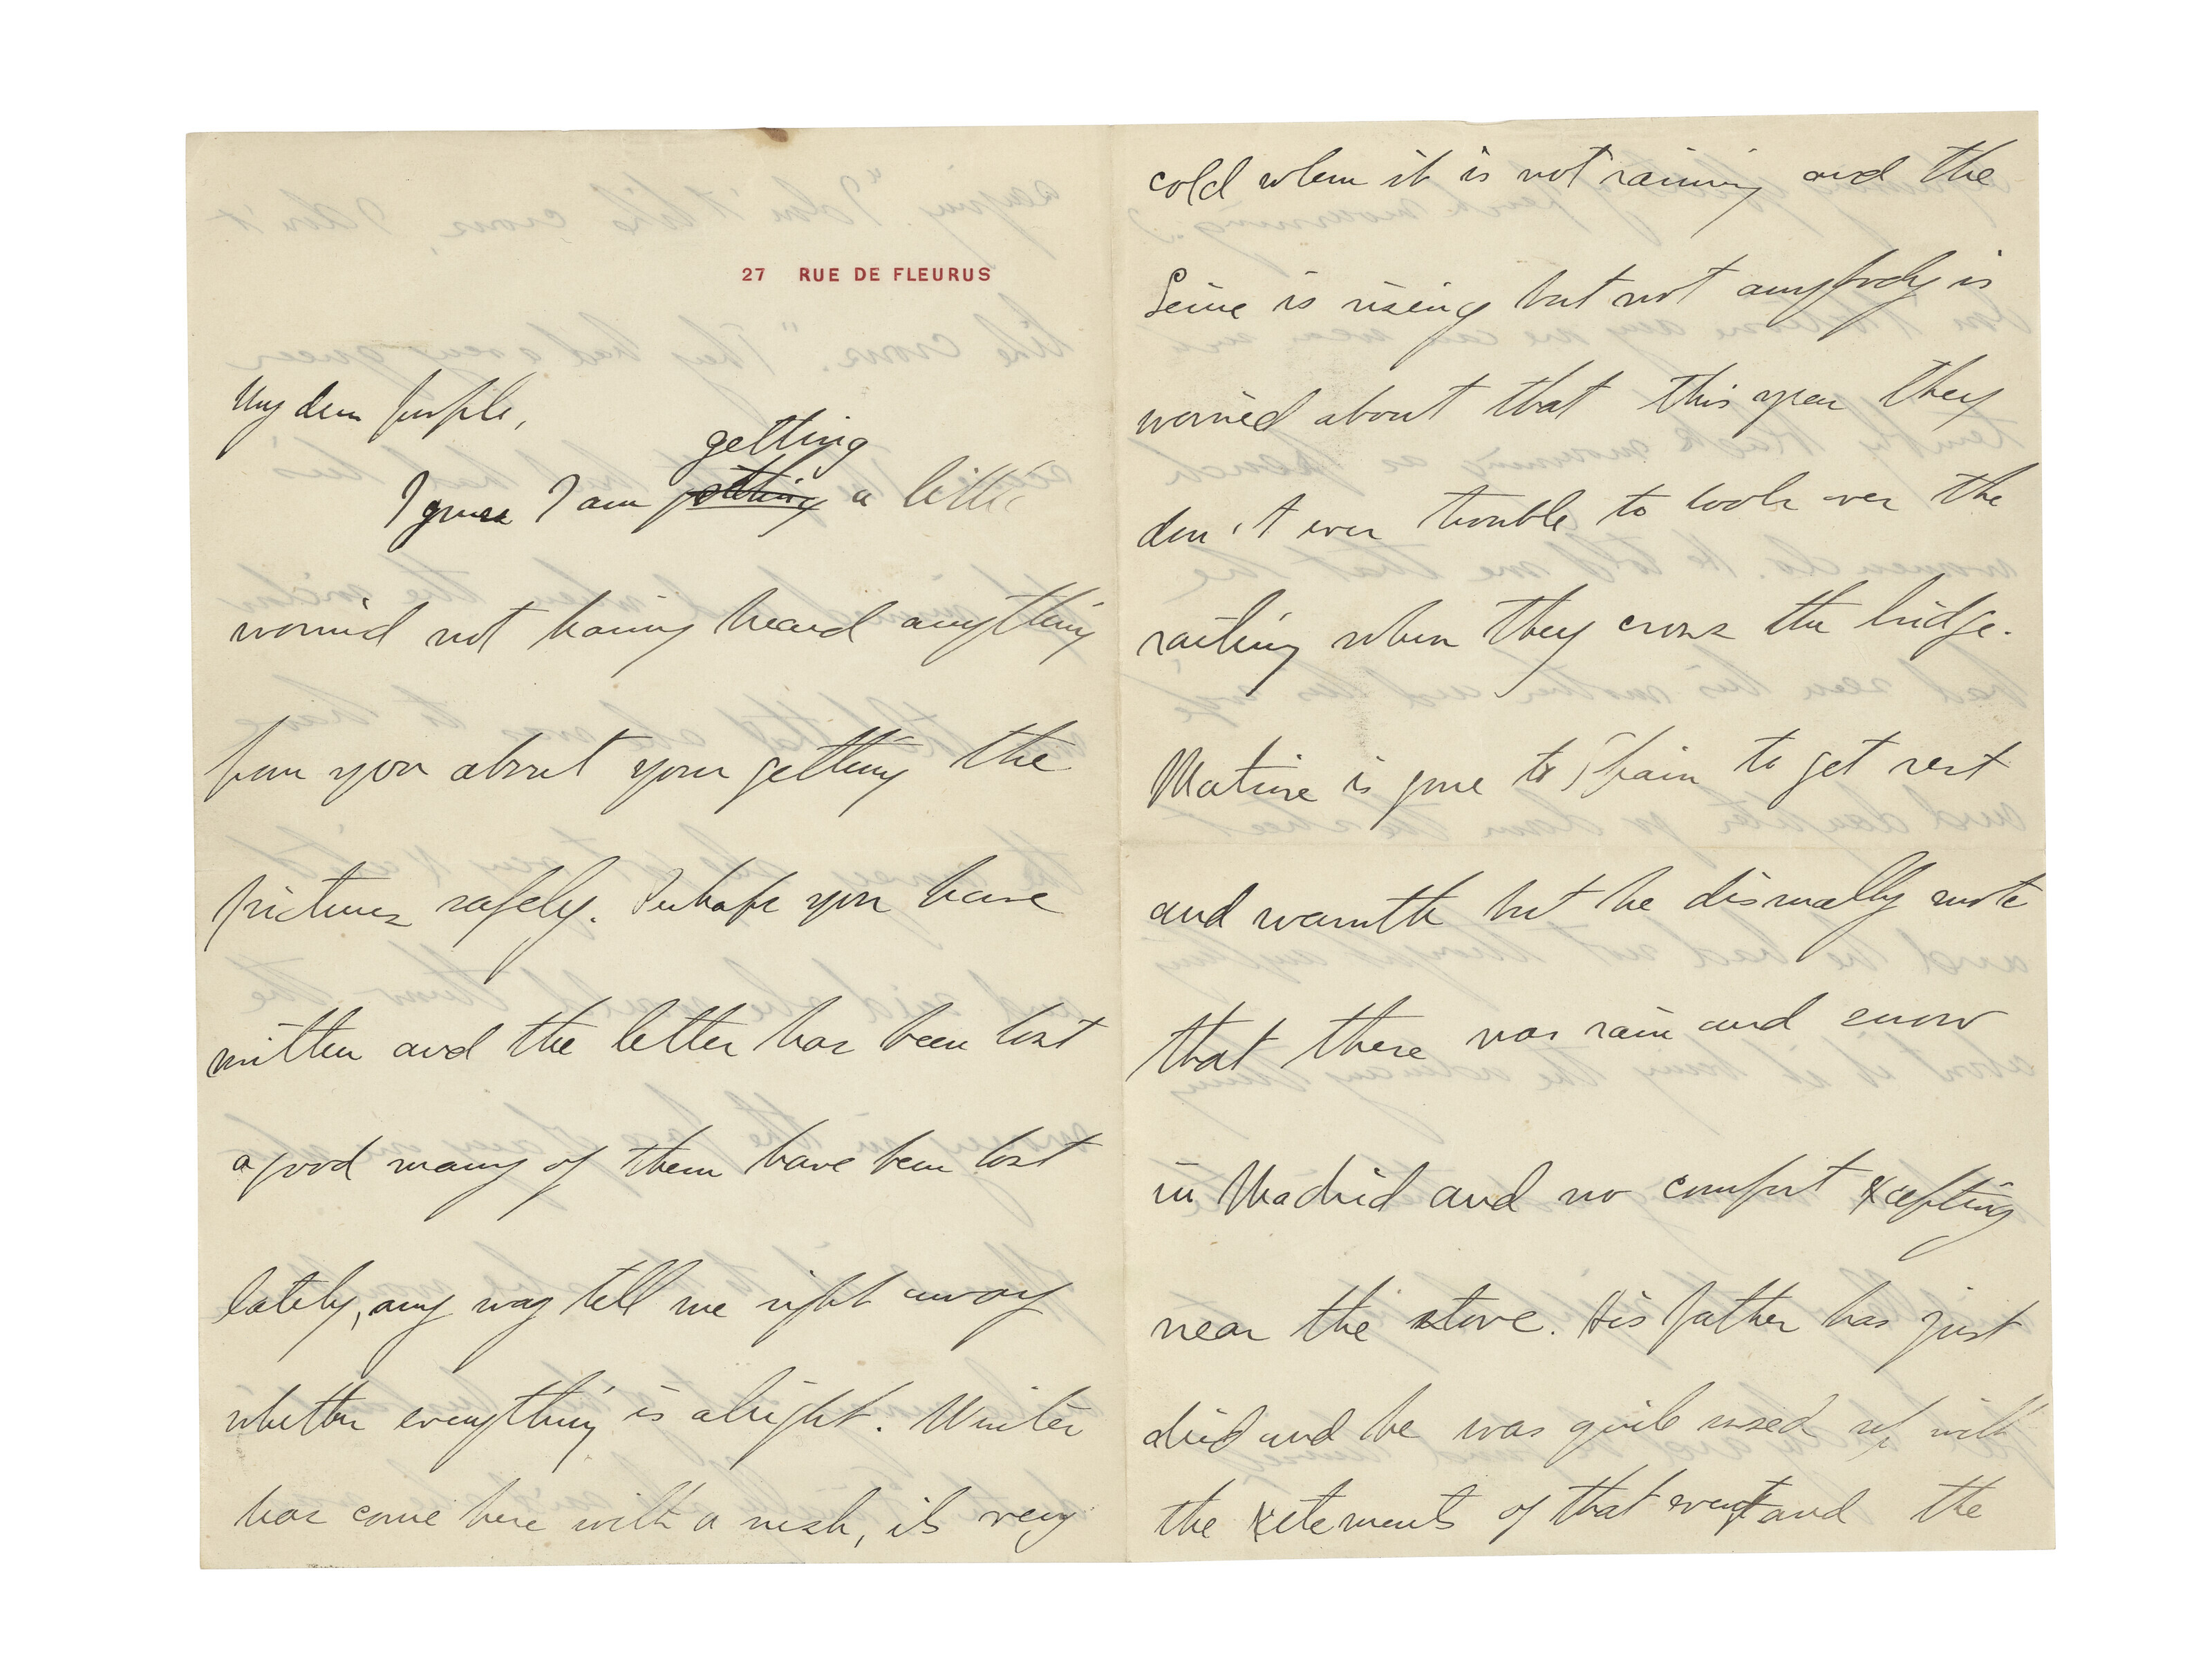 27 RUE DE FLEURUS
My dear people,
getting
I guess I am getting a little
worried not having heard anything
from you about your getting the
pictures safely. Perhaps you have
written and the letter has been lost
a good many of them have been lost
lately, any way tell me right away
whether everything is alright. Winter
has come here with a rush, its very
cold when it is not raining and the
Seine is rising but not anybody is
worried about that this year they
don't ever trouble to look over the
railing when they cross the bridge.
Matisse is gone to Spain to get rest
and warmth but he dismally wrote
that there was rain and snow
in Madrid and no comfort xcepting
near the stove. His father has just
died and he was quite used up with
the xcitements of that event and the